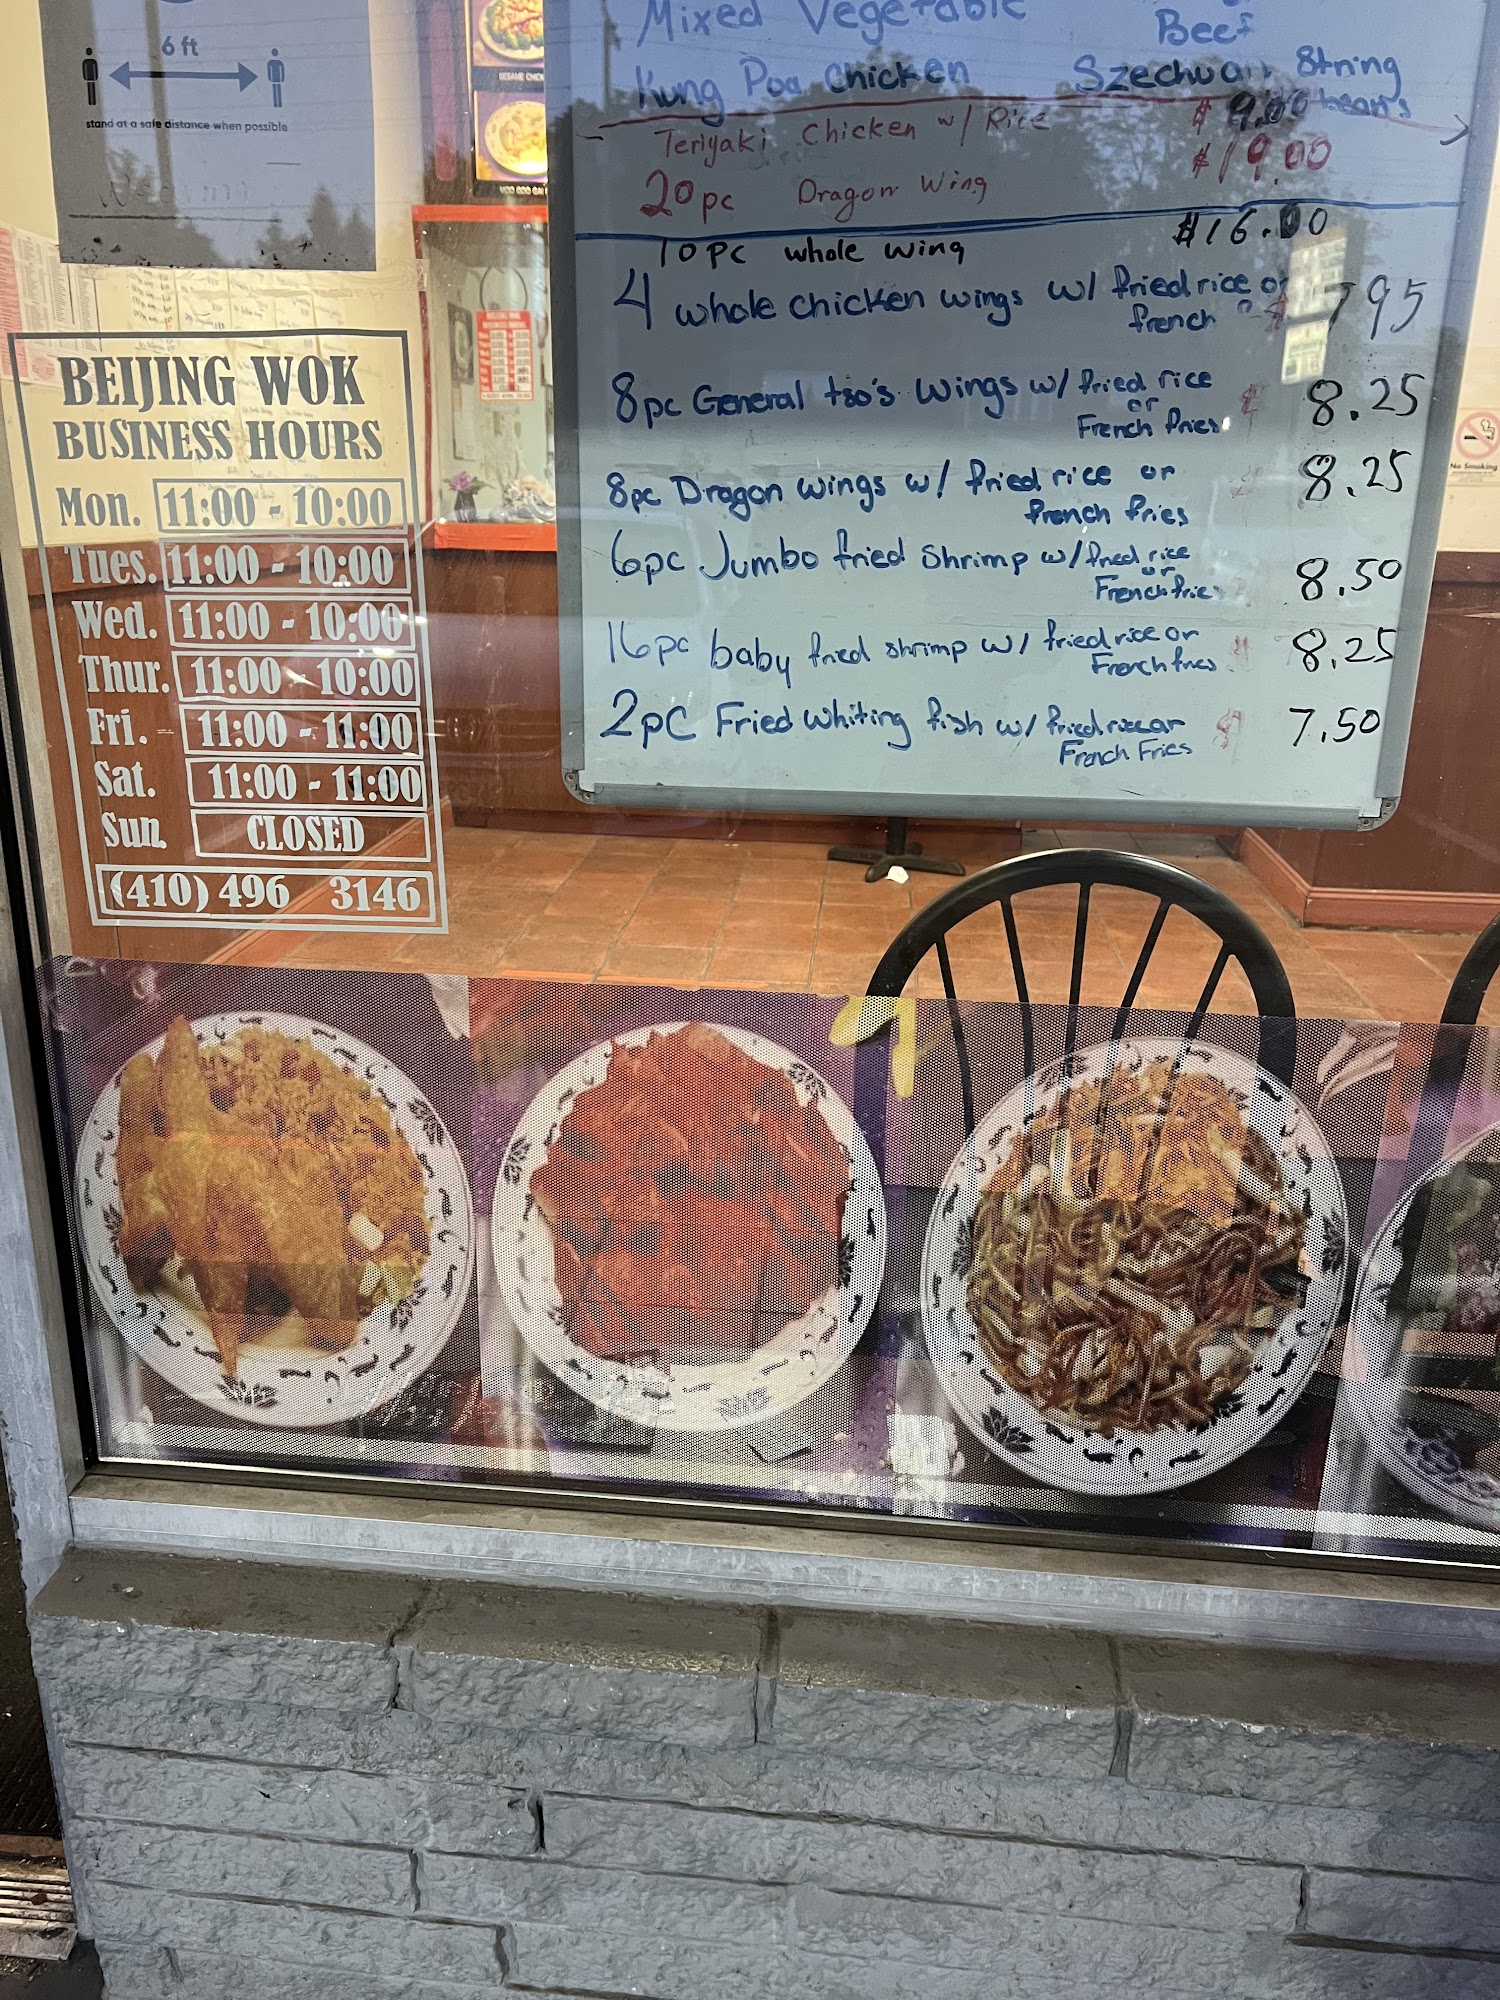 6 ft
stand at a safe distance when possible
SESAME CHICK
BEIJING WOK
BUSINESS HOURS
Mon. 11:00 - 10:00
Tues. 11:00 - 10:00
Wed. 11:00 - 10:00
Thur. 11:00 - 10:00
Fri. 11:00 - 11:00
Sat. 11:00 - 11:00
Sun. CLOSED
(410) 496 3146
Mixed Vegetable
Beef
Kung Poa Chicken Szechuan String
beans
Teriyaki Chicken w/ Rice $9.00
20pc Dragon Wing $19.00
10pc whole wing $16.00
4 whole chicken wings w/ fried rice or
french $7.95
8pc General tso's wings w/ fried rice
or
French fries $8.25
8pc Dragon wings w/ fried rice or
french fries $8.25
6pc Jumbo fried shrimp w/ fried rice
or
French fries 8.50
16pc baby fried shrimp w/ fried rice or
French fries $8.25
2pc Fried whiting fish w/ fried rice or
French Fries $7.50
No Smoking